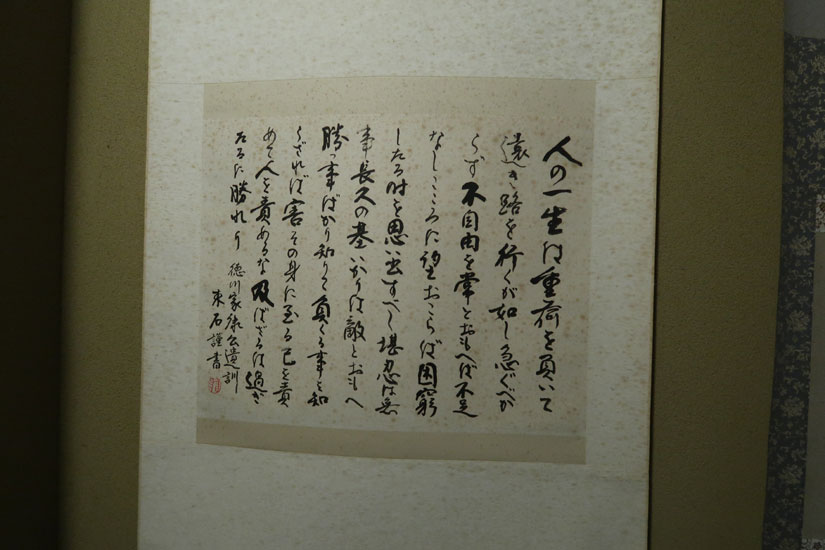 人の一生は重荷を負いて
遠き路を行くが如し急ぐべか
らず不自由を常とおもへば不足
なしこころに望おこらば困窮
したる時を思い出すべし堪忍は無
事長久の基いかりは敵とおもへ
勝つ事ばかり知りて負くる事を知
らざれば害その身に至る己を責
めて人を責めるな及ばざるは過ぎ
たるに勝れり
徳川家康公遺訓
東石謹書